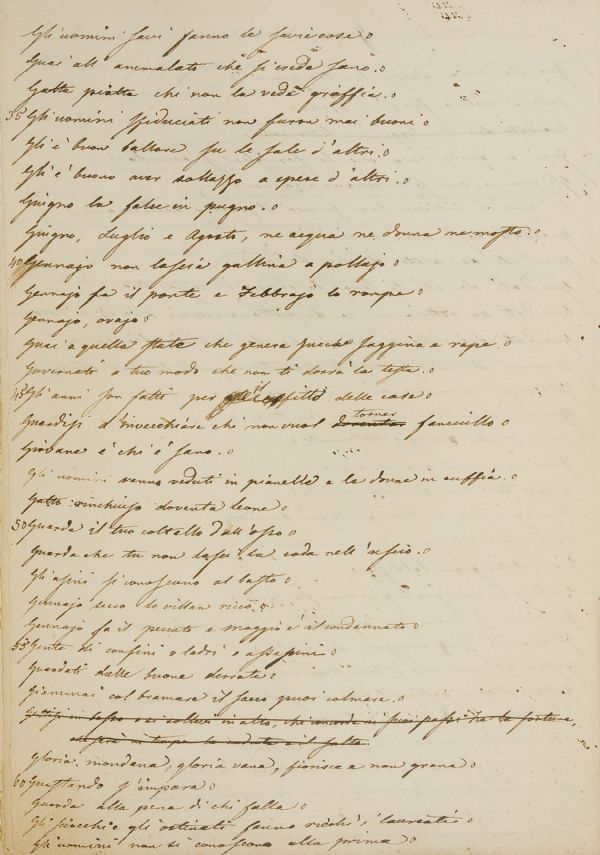 Gli uomini savi fanno le savie cose
Guai all' ammalato che si creda sano.
Gatta piatta chi non la vede graffia.
35 Gli uomini sfiduciati non furon mai buoni
Gli è buon ballare su le sale d'altri.
Gli è buono aver sollazzo a spese d'altri.
Giugno la falce in pugno.
Giugno, Luglio e Agosto, ne acqua ne donna ne mosto.
40 Gennajo non lascia gallina a pollajo
Gennajo fa il ponte e Febbrajo lo rompe
Gennajo, ovajo
Guai a quella state che genera saggina e rape.
Governati a tuo modo che non ti dorrà la testa.
45 Gli anni son fatti per il fitto delle case
Guardisi d'invecchiare chi non vuol tornar fanciullo
Giovane è chi è sano.
Gli uomini vanno veduti in pianelle e le donne in cuffia.
Gatto rinchiuso doventa leone
50 Guarda il tuo coltello dall'osso
Guarda che tu non lasci la coda nell'uscio.
Gli asini si conoscono al basto
Gennajo secco lo villan ricco.
Gennajo fa il peccato e maggio è il condannato
55 Gente di confini o ladri o assassini
Guardati dalle buone derrate
Giammai col bramare il sacco puoi colmare.
in alto, che concorde ai suoi passi ha la fortuna,
la caduta e il salto.
Gloria mondana, gloria vana, fiorisce e non grana
60 Guastando s'impara
Guarda alla pena di chi falla
Gli sciocchi e gli ostinati fanno ricchi i laureati
Gli uomini non si conoscono alla prima